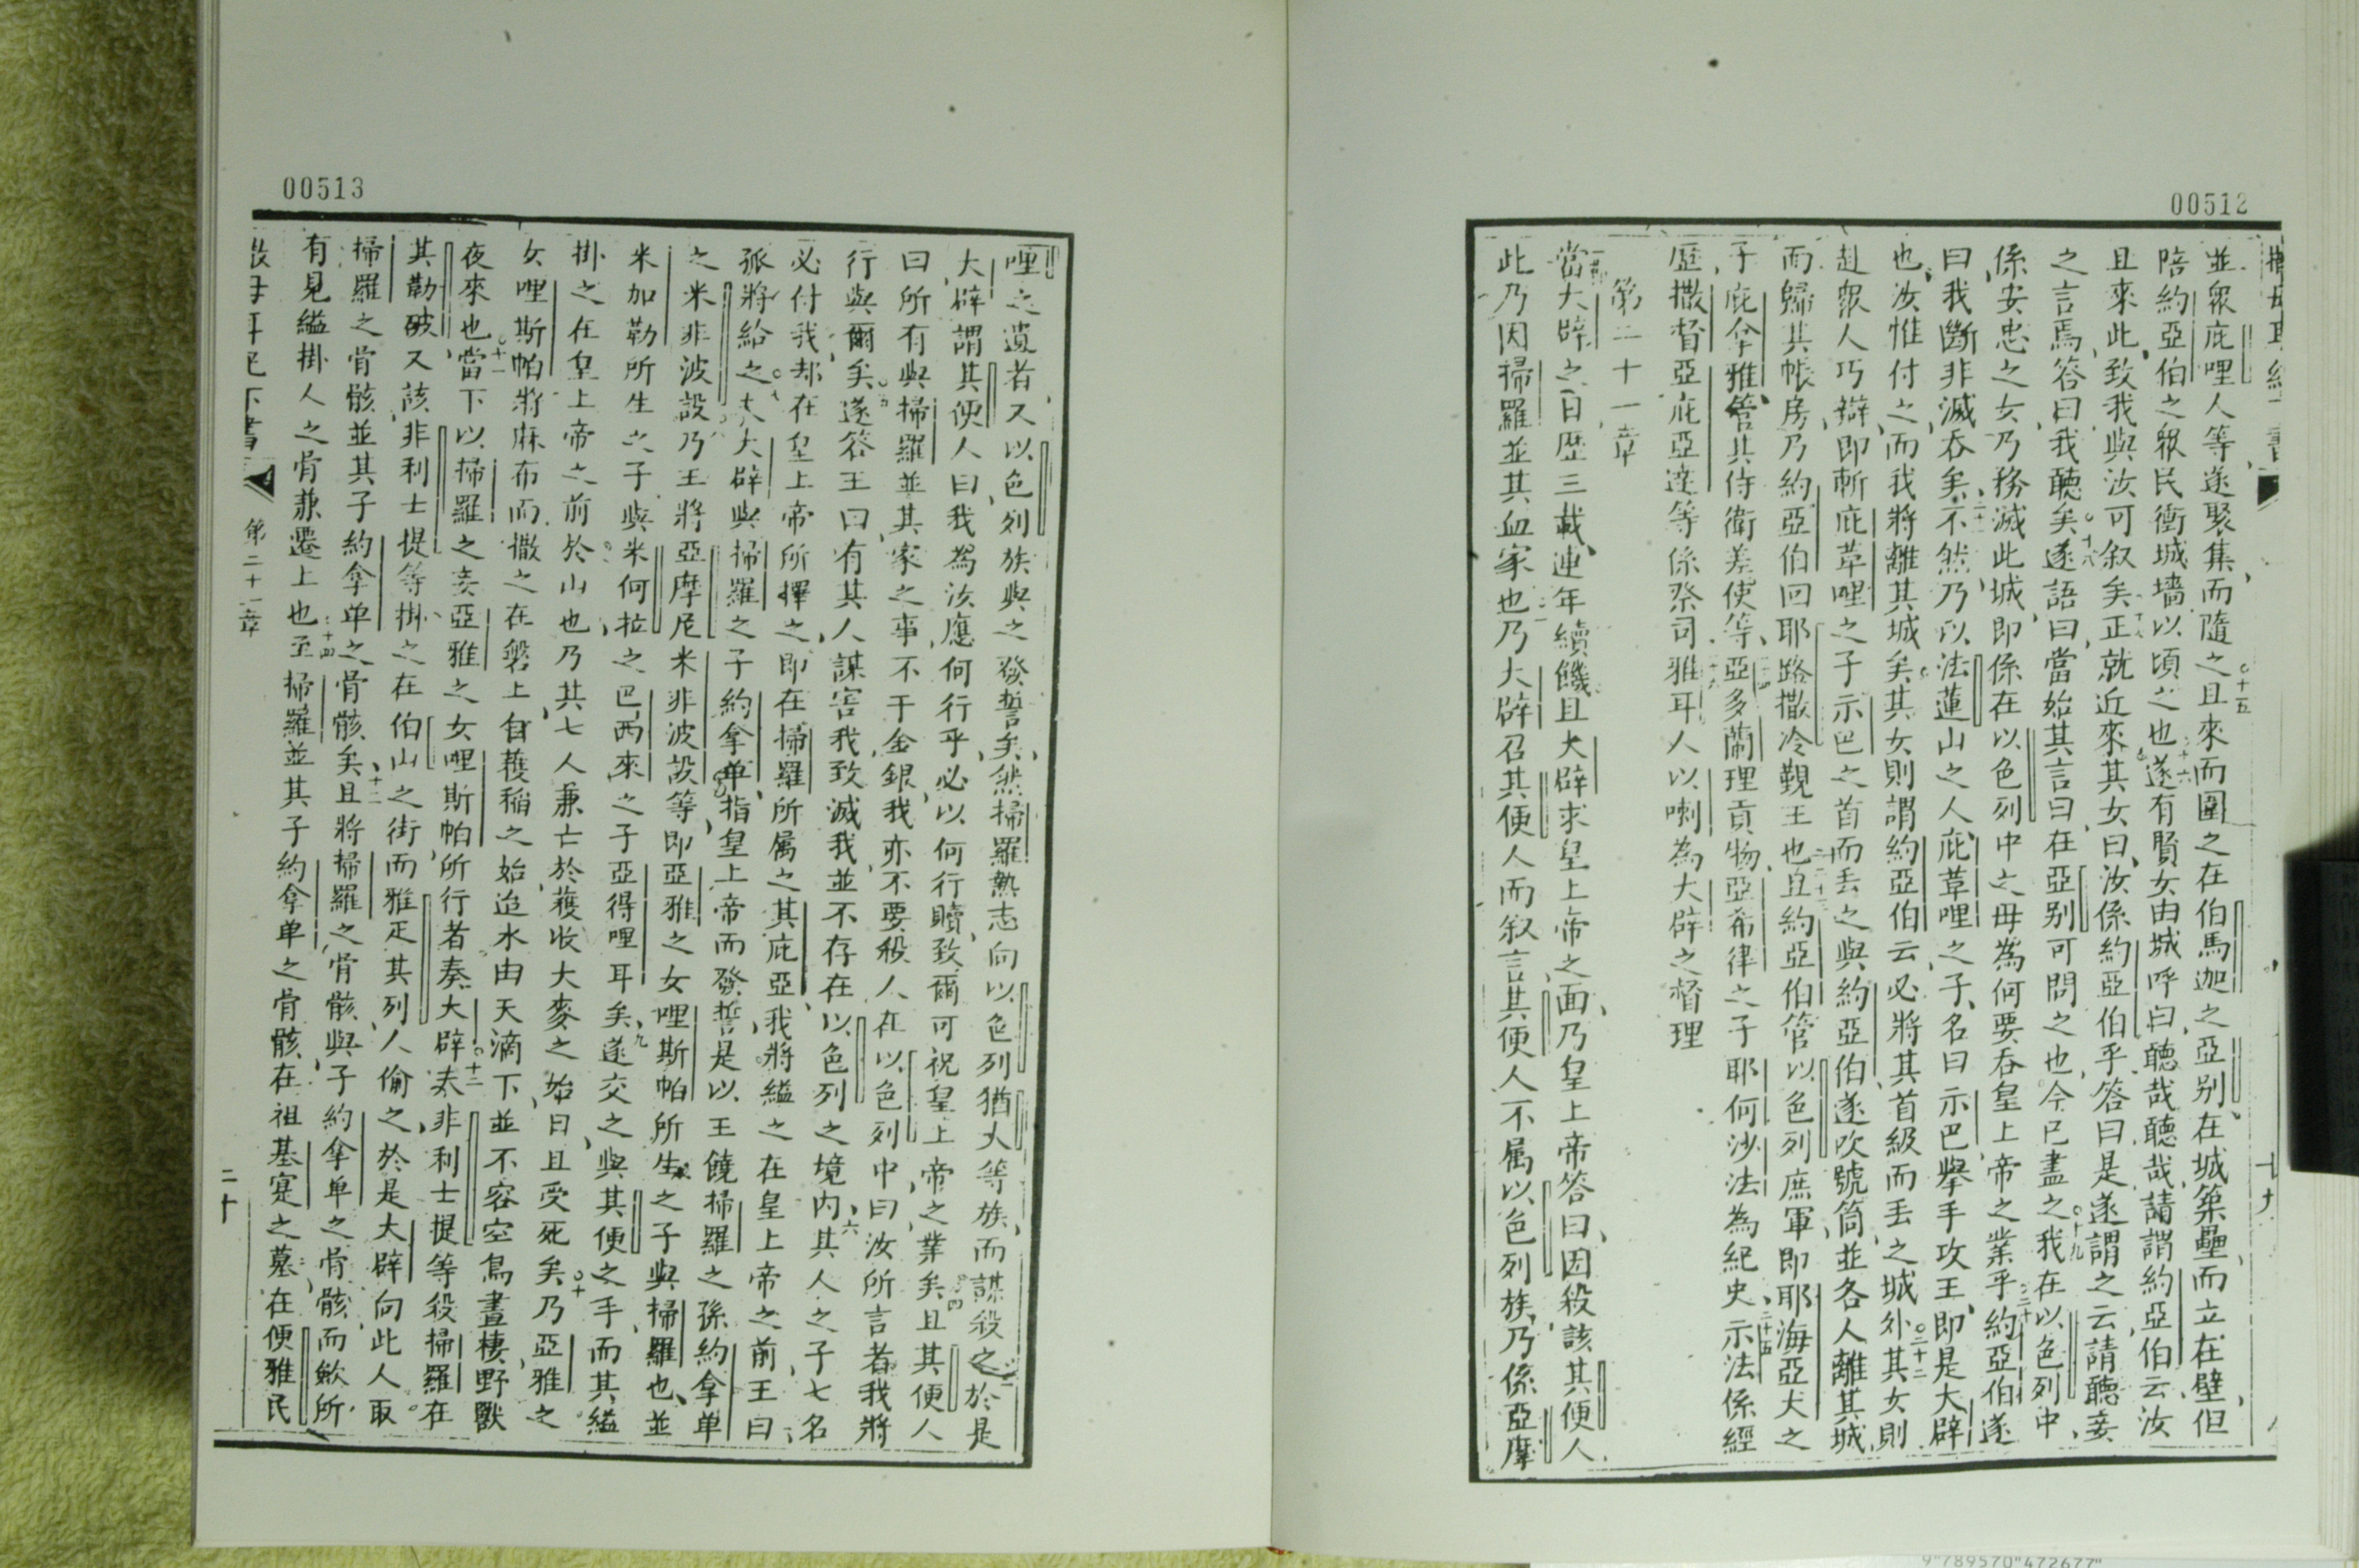 00512
並眾庇哩人等遂聚集而隨之○十五且來而圍之在伯馬迦之亞别在城築壘而立在壁但
陪約亞伯之眾民衝城墻以頃之也○十六遂有賢女由城呼曰聽哉聽哉請謂約亞伯云汝
且來此致我與汝可叙矣○十七正就近來其女曰汝係約亞伯乎答曰是遂謂之云請聽妾
之言焉答曰我聽矣○十八遂語曰當始其言曰在亞别可問之也今已盡之○十九我在以色列中
係安忠之女乃務滅此城即係在以色列中之母為何要吞皇上帝之業乎○二十約亞伯遂
曰我斷非滅吞矣○二十一不然乃以法蓮山之人庇革哩之子名曰示巴舉手攻王即是大辟
也汝惟付之而我將離其城矣其女則謂約亞伯云必將其首級而丢之城外○二十二其女則
赴眾人巧辯即斬庇革哩之子示巴之首而丢之與約亞伯遂吹號筒並各人離其城
而歸其帳房乃約亞伯回耶路撒冷覲王也○二十三且約亞伯管以色列庶軍即耶海亞大之
子庇拿雅管其侍衛差使等○二十四亞多蘭理貢物亞希律之子耶何沙法為紀史○二十五示法係經
歷撒督亞庇亞達等係祭司○二十六雅耳人以喇為大辟之督理
第二十一章
當大辟之日歷三載連年續饑且大辟求皇上帝之面乃皇上帝答曰因殺該其便人
此乃因掃羅並其血家也○二乃大辟召其便人而叙言其便人不属以色列族乃係亞摩
十九
00513
哩之遺者又以色列族與之發誓矣然掃羅熱志向以色列猶大等族而謀殺之○三於是
大辟謂其便人曰我為汝應何行乎必以何行贖致爾可祝皇上帝之業矣○四且其便人
曰所有與掃羅並其家之事不干金銀我亦不要殺人在以色列中曰汝所言者我將
行與爾矣○五遂答王曰有其人謀害我致滅我並不存在以色列之境内○六其人之子七名
必付我却在皇上帝所擇之即在掃羅所属之其庇亞我將縊之在皇上帝之前王曰
孤將給之○七夫大辟與掃羅之子約拿单指皇上帝而發誓是以王饒掃羅之孫約拿单
之米非波設○八乃王將亞摩尼米非波設等即亞雅之女哩斯帕所生之子與掃羅也並
米加勒所生之子與米何拉之巴西來之子亞得哩耳矣○九遂交之與其便之手而其縊
掛之在皇上帝之前於山也乃其七人兼亡於穫收大麥之始日且受死矣○十乃亞雅之
女哩斯帕將麻布而撒之在磐上自穫稲之始迨水由天滴下並不容空鳥晝棲野獸
夜來也○十一當下以掃羅之妾亞雅之女哩斯帕所行者奏大辟○十二夫非利士提等殺掃羅在
其勒破又該非利士提等掛之在伯山之街而雅疋其列人偷之於是大辟向此人取
掃羅之骨骸並其子約拿单之骨骸矣○十三且將掃羅之骨骸與子約拿单之骨骸而歛所
有見縊掛人之骨兼遷上也○十四至掃羅並其子約拿单之骨骸在祖基寔之墓在便雅民
撒母耳記下書
第二十一章
二十
9"789570"472677"